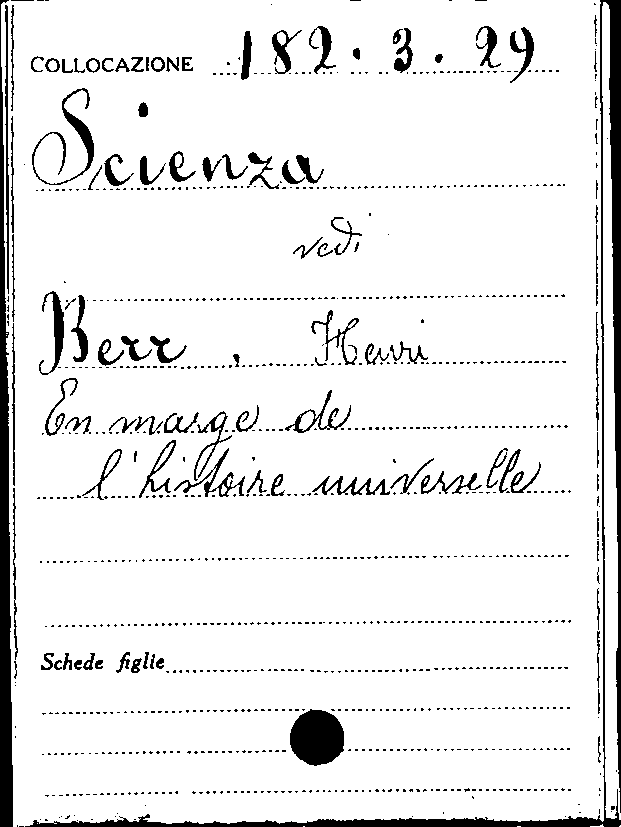 COLLOCAZIONE 182.3.29
Scienza
vedi
Berr, Henri
En marge de
l'histoire universelle
Schede figlie